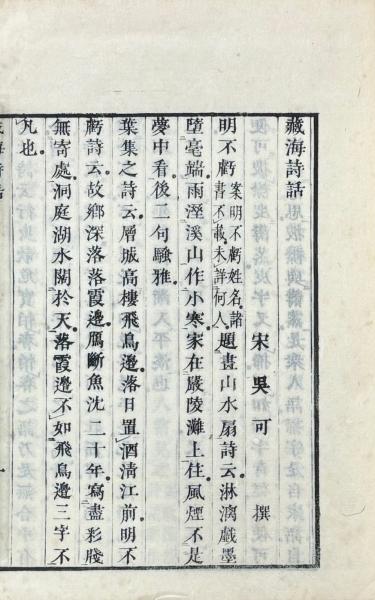 藏海詩話
宋吳可 撰
明不虧案明不虧姓名諸書不載未詳何人題畫山水扇詩云淋漓戲墨
墮毫端雨溼溪山作小寒家在嚴陵灘上住風煙不是
夢中看後二句騷雅
葉集之詩云層城高樓飛鳥邊落日置酒清江前明不
虧詩云故鄉深落落霞邊鴈斷魚沈二十年寫盡彩牋
無寄處洞庭湖水闊於天落霞邊不如飛鳥邊三字不
凡也
海詩話